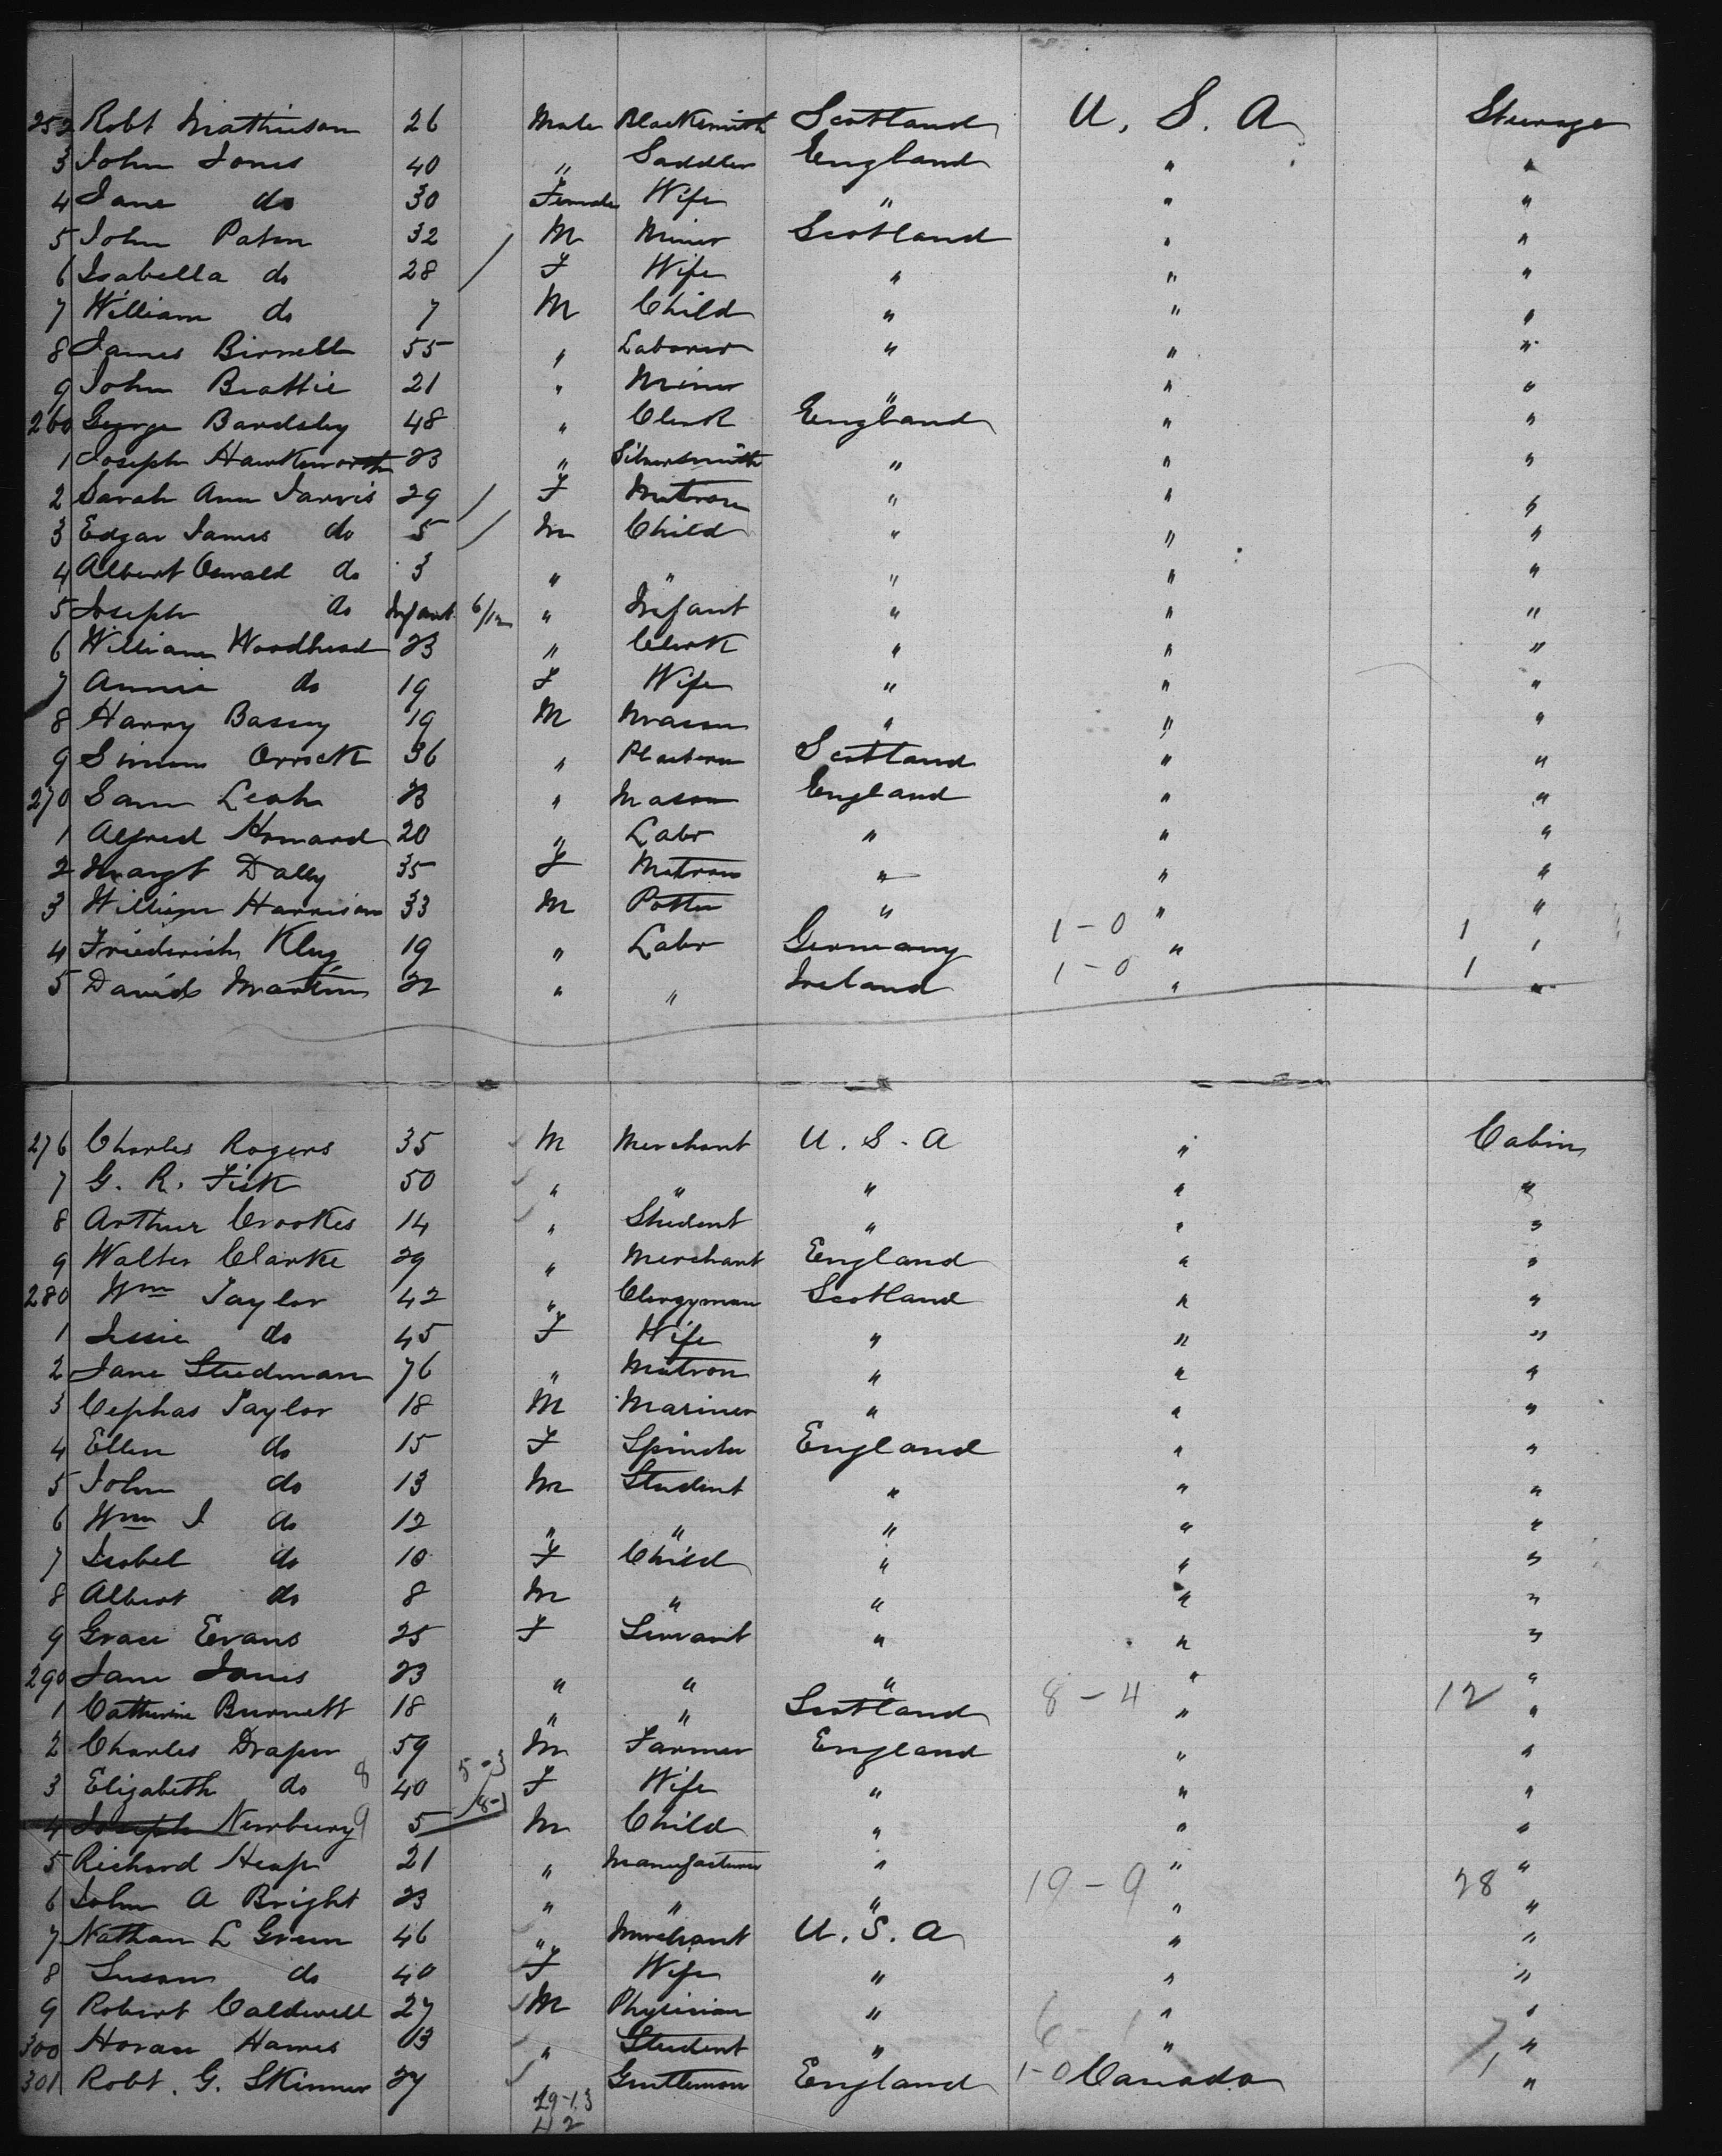 252 Robt Mathieson 26 Male Blacksmith Scotland U. S. A Steerage
3 John Jones 40 " Saddler England " "
4 Jane do 30 Female Wife " " "
5 John Paton 32 M Miner Scotland " "
6 Isabella do 28 / F Wife " " "
7 William do 7 M Child " " "
8 James Birrell 55 " Laborer " " "
9 John Beattie 21 " Miner " " "
260 George Bardsley 48 " Clerk England " "
1 Joseph Hawksworth 23 " Silversmith " " "
2 Sarah Ann Jarvis 29 / F Matron " " "
3 Edgar James do 5 / M Child " " "
4 Albert Oswald do 3 " " " " "
5 Joseph do Infant 6/12 " Infant " " "
6 William Woodhead 23 " Clerk " " "
7 Annie do 19 F Wife " " "
8 Harry Bassey 19 M Mason " " "
9 Simon Orrock 36 " Plasterer Scotland " "
270 Sam Leah 23 " Mason England " "
1 Alfred Howard 20 " Labr " " "
2 Margt Dally 35 F Matron " " "
3 William Harrison 33 M Potter " " "
4 Friederich Klug 19 " Labr Germany 1-0 " 1 "
5 David Martin 22 " " Ireland 1-0 " 1 "
276 Charles Rogers 35 M Merchant U. S. A " Cabin
7 G. R. Fisk 50 " " " " "
8 Arthur Crookes 14 " Student " " "
9 Walter Clarke 29 " Merchant England " "
280 Wm Taylor 42 " Clergyman Scotland " "
1 Jessie do 45 F Wife " " "
2 Jane Steedman 76 " Matron " " "
3 Cephas Taylor 18 M Mariner " " "
4 Ellen do 15 F Spinster England " "
5 John do 13 M Student " " "
6 Wm J do 12 " " " " "
7 Isobel do 10 F Child " " "
8 Albert do 8 M " " " "
9 Grace Evans 25 F Servant " " "
290 Jane Jones 23 " " " " "
1 Catherine Burnett 18 " " Scotland 8-4 " 12 "
2 Charles Draper 59 M Farmer England " "
3 Elizabeth do 8 40 F Wife " " "
4 Joseph Newbury 9 5 M Child " " "
5 Richard Heap 21 " Manufacturer " " "
6 John A Bright 23 " " " 19-9 " 28 "
7 Nathan L Green 46 " Merchant U. S. A " "
8 Susan do 40 F Wife " " "
9 Robert Caldwell 27 M Physician " " "
300 Horan Hawes 13 " Student " 6-1 " 7 "
301 Robt. G. Skinner 27 Gentleman England 1-0 Canada 1 "
29-13
42